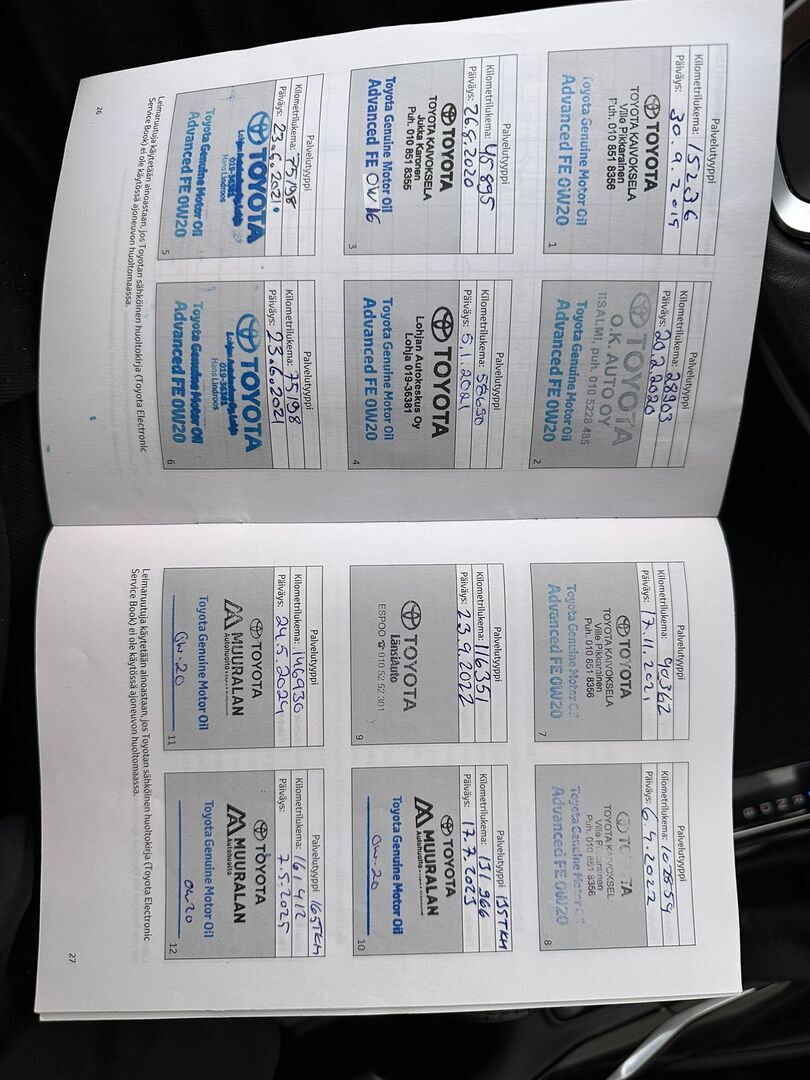 Palvelutyyppi
Kilometrilukema: 15236
Päiväys: 30.9.2019
TOYOTA
TOYOTA KAIVOKSELA
Ville Pikkarainen
Puh. 010 851 8356
Toyota Genuine Motor Oil
Advanced FE 0W20
1
Palvelutyyppi
Kilometrilukema: 28903
Päiväys: 20.2.2020
TOYOTA
O.K. AUTO OY
IISALMI, puh. 010 5228 485
Toyota Genuine Motor Oil
Advanced FE 0W20
2
Palvelutyyppi
Kilometrilukema: 45895
Päiväys: 26.8.2020
TOYOTA
TOYOTA KAIVOKSELA
Jukka Kanonen
Puh. 010 851 8356
Toyota Genuine Motor Oil
Advanced FE 0W16
3
Palvelutyyppi
Kilometrilukema: 58690
Päiväys: 5.1.2021
TOYOTA
Lohjan Autokeskus Oy
Lohja 019-36381
Toyota Genuine Motor Oil
Advanced FE 0W20
4
Palvelutyyppi
Kilometrilukema: 75198
Päiväys: 23.6.2021
TOYOTA
Hans Lindroos
Toyota Genuine Motor Oil
Advanced FE 0W20
5
Palvelutyyppi
Kilometrilukema: 75198
Päiväys: 23.6.2021
TOYOTA
Hans Lindroos
Toyota Genuine Motor Oil
Advanced FE 0W20
6
Leimaruutuja käytetään ainoastaan, jos Toyotan sähköinen huoltokirja (Toyota Electronic
Service Book) ei ole käytössä ajoneuvon huoltomaassa.
26
Palvelutyyppi
Kilometrilukema: 90362
Päiväys: 17.11.2021
TOYOTA
TOYOTA KAIVOKSELA
Ville Pikkarainen
Puh. 010 851 8356
Toyota Genuine Motor Oil
Advanced FE 0W20
7
Palvelutyyppi
Kilometrilukema: 102859
Päiväys: 6.4.2022
TOYOTA
TOYOTA KAIVOKSEL
Ville Pikkarainen
Puh. 010 851 8356
Toyota Genuine Motor Oil
Advanced FE 0W20
8
Palvelutyyppi
Kilometrilukema: 116351
Päiväys: 23.9.2022
TOYOTA
LänsiAuto
ESPOO ☎ 010 52 52 301
9
Palvelutyyppi 135TKM
Kilometrilukema: 131966
Päiväys: 17.7.2023
TOYOTA
MUURALAN
Autohuolto
Toyota Genuine Motor Oil
0W-20
10
Palvelutyyppi
Kilometrilukema: 146930
Päiväys: 24.5.2024
TOYOTA
MUURALAN
Autohuolto
Toyota Genuine Motor Oil
0W-20
11
Palvelutyyppi 165TKM
Kilometrilukema: 161412
Päiväys: 7.5.2025
TOYOTA
MUURALAN
Autohuolto
Toyota Genuine Motor Oil
0W20
12
Leimaruutuja käytetään ainoastaan, jos Toyotan sähköinen huoltokirja (Toyota Electronic
Service Book) ei ole käytössä ajoneuvon huoltomaassa.
27